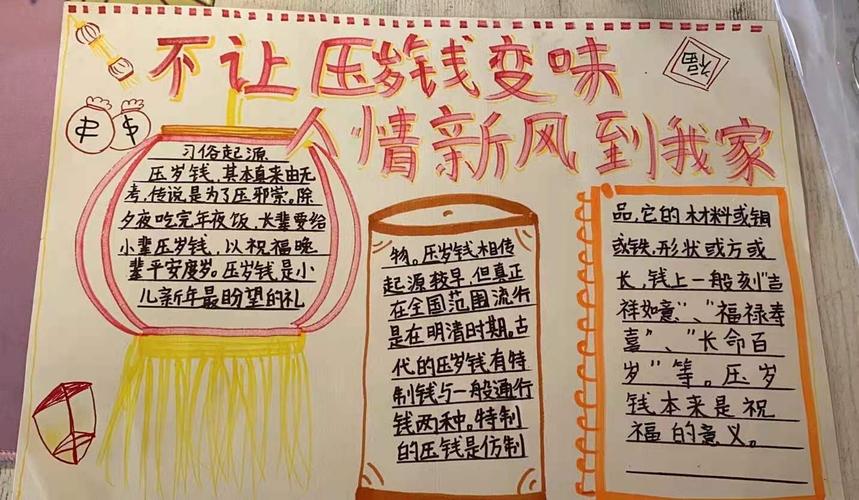 不让压岁钱变味
人情新风到我家
福
习俗起源
压岁钱,其本真来由无
考,传说是为了压邪祟。除
夕夜吃完年夜饭,长辈要给
小辈压岁钱,以祝福晚
辈平安度岁。压岁钱是小
儿新年最盼望的礼
物。压岁钱相传
起源较早,但真正
在全国范围流行
是在明清时期。古
代的压岁钱有特
制钱与一般通行
钱两种。特制
的压钱是仿制
品,它的材料或铜
或铁,形状或方或
长,钱上一般刻"吉
祥如意"、"福禄寿
喜"、"长命百
岁"等。压岁
钱本来是祝
福的意义。